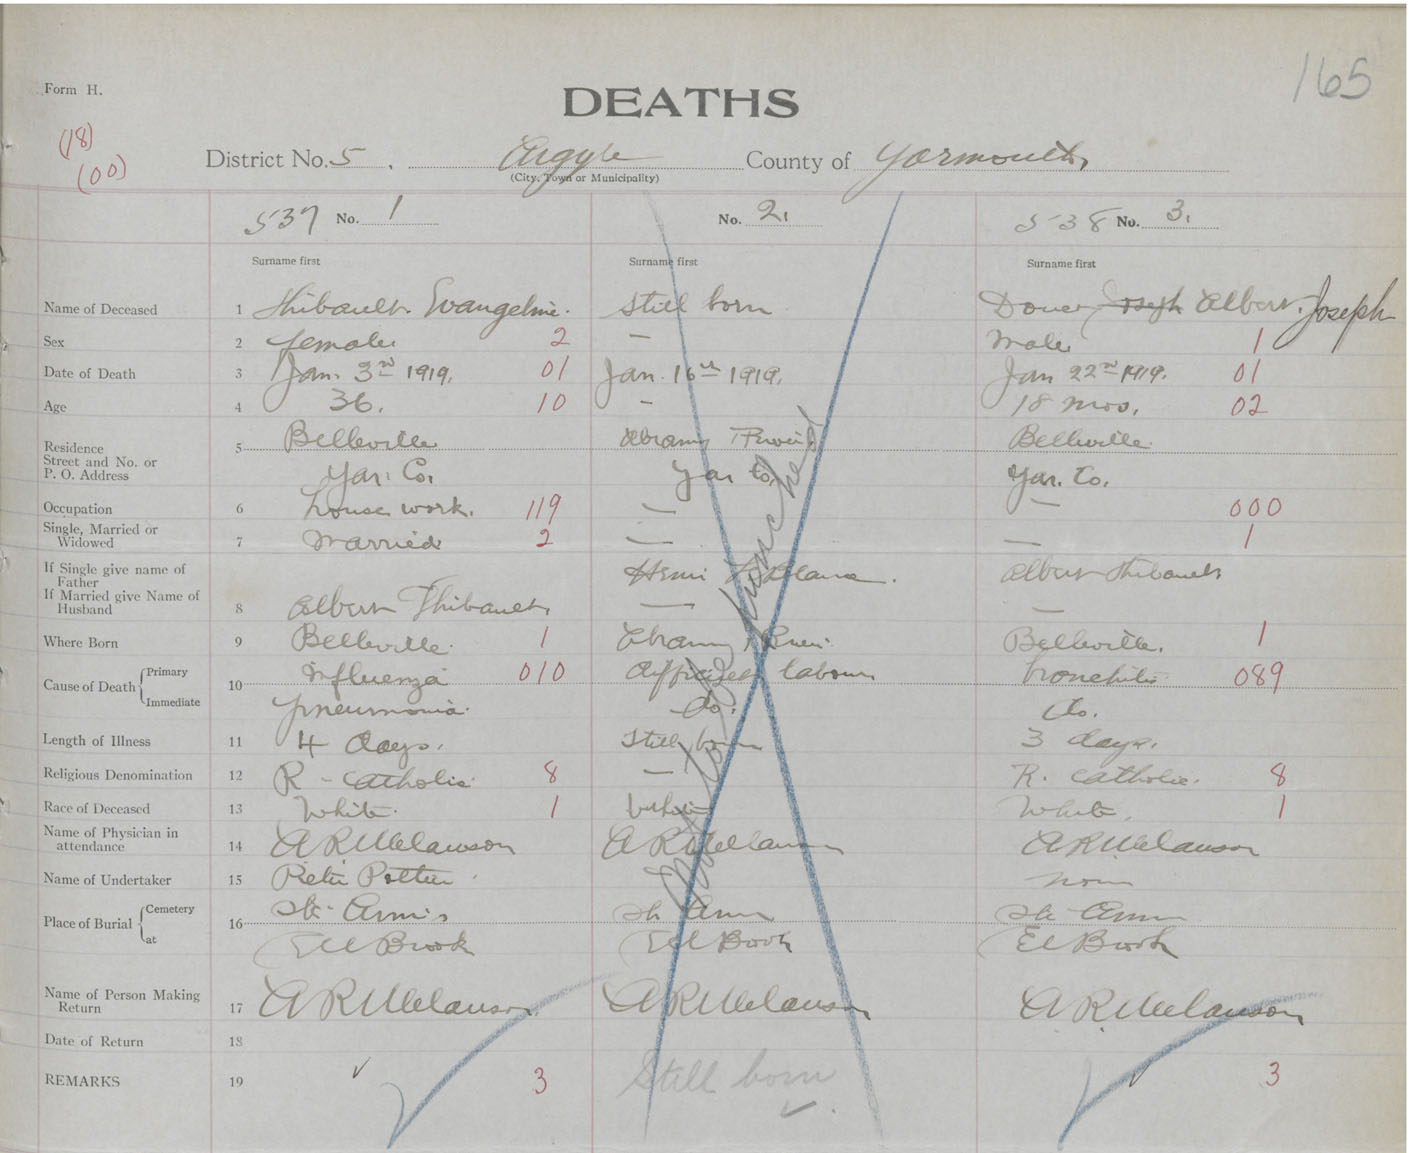 Form H.
165
DEATHS
(18)
(00)
District No. 5, Argyle County of Yarmouth,
(City, Town or Municipality)
537 No. 1 No. 2, 538 No. 3,
Surname first Surname first Surname first
Name of Deceased 1 Thibault Evangeline. Still born Joseph Albert Joseph
Sex 2 female 2 — Male 1
Date of Death 3 Jan. 3rd 1919. 01 Jan. 16th 1919. Jan 22nd 1919. 01
Age 4 36. 10 — 18 mos. 02
Residence
Street and No. or
P. O. Address 5 Belleville Belleville
Yar. Co. Yar Co. Yar. Co.
Occupation 6 house work. 119 — — 000
Single, Married or
Widowed 7 Married 2 — — 1
If Single give name of
Father Albert Thibault
If Married give Name of
Husband 8 Albert Thibault — —
Where Born 9 Belleville. 1 Belleville. 1
Cause of Death Primary 10 Influenza 010 labour bronchitis 089
Immediate pneumonia do. do.
Length of Illness 11 4 days. Still born 3 days.
Religious Denomination 12 R. Catholic 8 — R. Catholic. 8
Race of Deceased 13 White. 1 white White. 1
Name of Physician in
attendance 14 A R Melanson A R Melanson A R Melanson
Name of Undertaker 15 none
Place of Burial Cemetery 16 Ste. Ann's St Ann Ste Ann
at Eel Brook Eel Brook Eel Brook
Name of Person Making
Return 17 A R Melanson. A R Melanson A R Melanson
Date of Return 18
REMARKS 19 3 Still born 3
Not to be punched